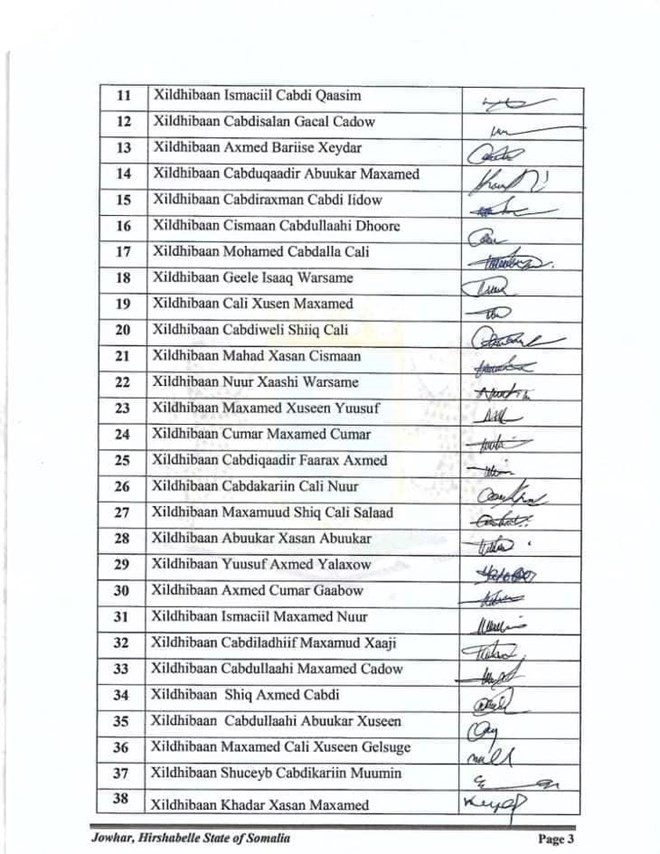 11 Xildhibaan Ismaciil Cabdi Qaasim
12 Xildhibaan Cabdisalan Gacal Cadow
13 Xildhibaan Axmed Bariise Xeydar
14 Xildhibaan Cabduqaadir Abuukar Maxamed
15 Xildhibaan Cabdiraxman Cabdi Iidow
16 Xildhibaan Cismaan Cabdullaahi Dhoore
17 Xildhibaan Mohamed Cabdalla Cali
18 Xildhibaan Geele Isaaq Warsame
19 Xildhibaan Cali Xusen Maxamed
20 Xildhibaan Cabdiweli Shiiq Cali
21 Xildhibaan Mahad Xasan Cismaan
22 Xildhibaan Nuur Xaashi Warsame
23 Xildhibaan Maxamed Xuseen Yuusuf
24 Xildhibaan Cumar Maxamed Cumar
25 Xildhibaan Cabdiqaadir Faarax Axmed
26 Xildhibaan Cabdakariin Cali Nuur
27 Xildhibaan Maxamuud Shiq Cali Salaad
28 Xildhibaan Abuukar Xasan Abuukar
29 Xildhibaan Yuusuf Axmed Yalaxow
30 Xildhibaan Axmed Cumar Gaabow
31 Xildhibaan Ismaciil Maxamed Nuur
32 Xildhibaan Cabdiladhiif Maxamud Xaaji
33 Xildhibaan Cabdullaahi Maxamed Cadow
34 Xildhibaan Shiq Axmed Cabdi
35 Xildhibaan Cabdullaahi Abuukar Xuseen
36 Xildhibaan Maxamed Cali Xuseen Gelsuge
37 Xildhibaan Shuceyb Cabdikariin Muumin
38 Xildhibaan Khadar Xasan Maxamed
Jowhar, Hirshabelle State of Somalia Page 3